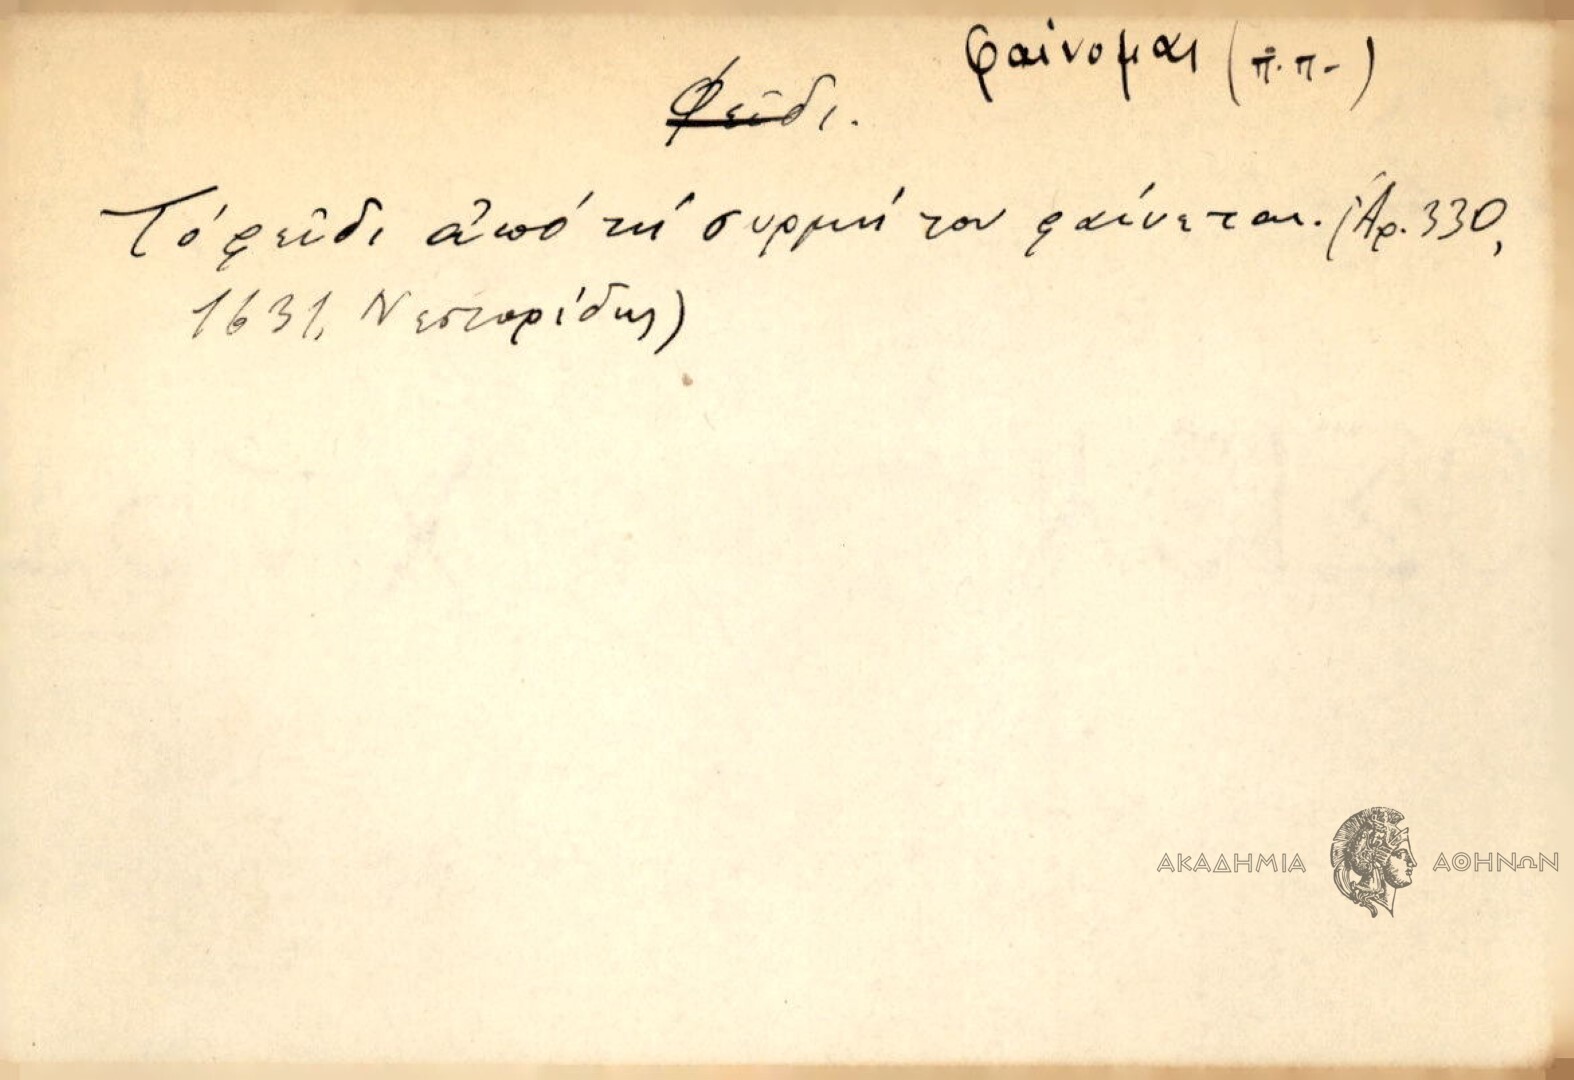 φαίνομαι (π.π.)
Φεῖδι.
Τό φεῖδι ἀπό τή συρμή του φαίνεται. (Ἀρ. 330,
1631, Νεστορίδης)
ΑΚΑΔΗΜΙΑ ΑΘΗΝΩΝ